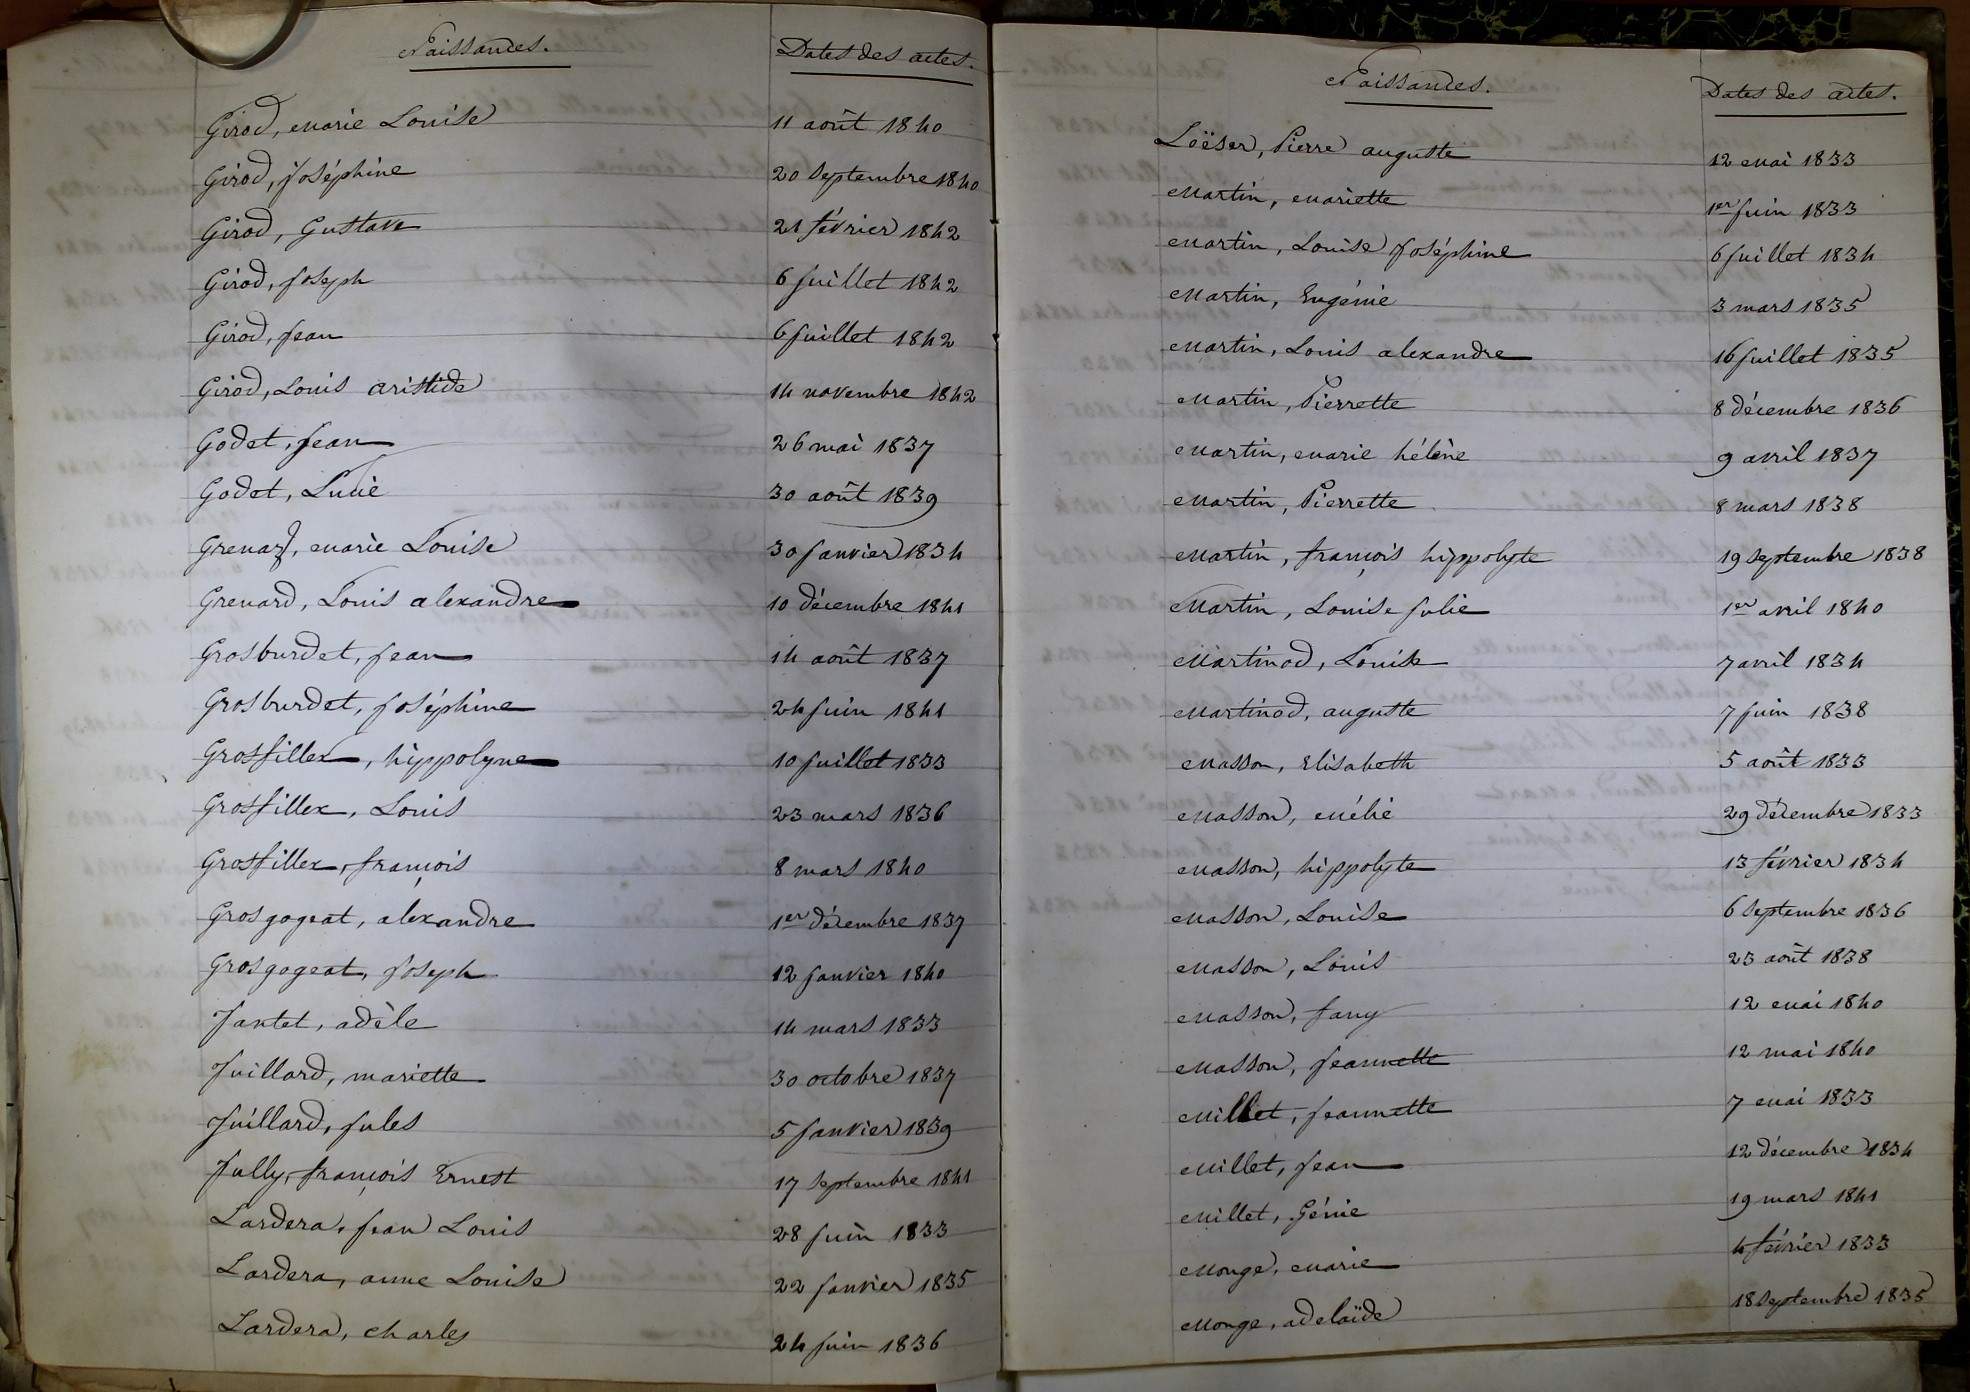 Naissances. Dates des actes.
Girod, marie Louise 11 août 1840
Girod, Joséphine 20 septembre 1840
Girod, Gustave 21 février 1842
Girod, Joseph 6 juillet 1842
Girod, jean 6 juillet 1842
Girod, Louis aristide 14 novembre 1842
Godet, jean 26 mai 1837
Godet, Lucie 30 août 1839
Grenard, marie Louise 30 janvier 1834
Grenard, Louis alexandre 10 décembre 1841
Grosburdet, jean 14 août 1837
Grosburdet, joséphine 24 juin 1841
Grosfillex, hippolyne 10 juillet 1833
Grosfillex, Louis 23 mars 1836
Grosfillex, françois 8 mars 1840
Grosgogeat, alexandre 1er décembre 1837
Grosgogeat, joseph 12 janvier 1840
Jantet, adèle 14 mars 1833
Juillard, mariette 30 octobre 1837
Juillard, jules 5 janvier 1839
Jully, françois Ernest 17 septembre 1841
Lardera, jean Louis 28 juin 1833
Lardera, anne Louise 22 janvier 1835
Lardera, charles 24 juin 1836
Naissances. Dates des actes.
Loëser, Pierre auguste 12 mai 1833
Martin, mariette 1er juin 1833
Martin, Louise Joséphine 6 juillet 1834
Martin, Eugénie 3 mars 1835
Martin, Louis alexandre 16 juillet 1835
Martin, Pierrette 8 décembre 1836
Martin, marie hélène 9 avril 1837
Martin, Pierrette 8 mars 1838
Martin, françois hippolyte 19 septembre 1838
Martin, Louise julie 1er avril 1840
Martinod, Louise 7 avril 1834
Martinod, auguste 7 juin 1838
Masson, Elisabeth 5 août 1833
Masson, mélie 29 décembre 1833
Masson, hippolyte 13 février 1834
Masson, Louise 6 septembre 1836
Masson, Louis 23 août 1838
Masson, fany 12 mai 1840
Masson, jeannette 12 mai 1840
Millet, jeannette 7 mai 1833
Millet, jean 12 décembre 1834
Millet, Génie 19 mars 1841
Monge, marie 4 février 1833
Monge, adelaïde 18 septembre 1835